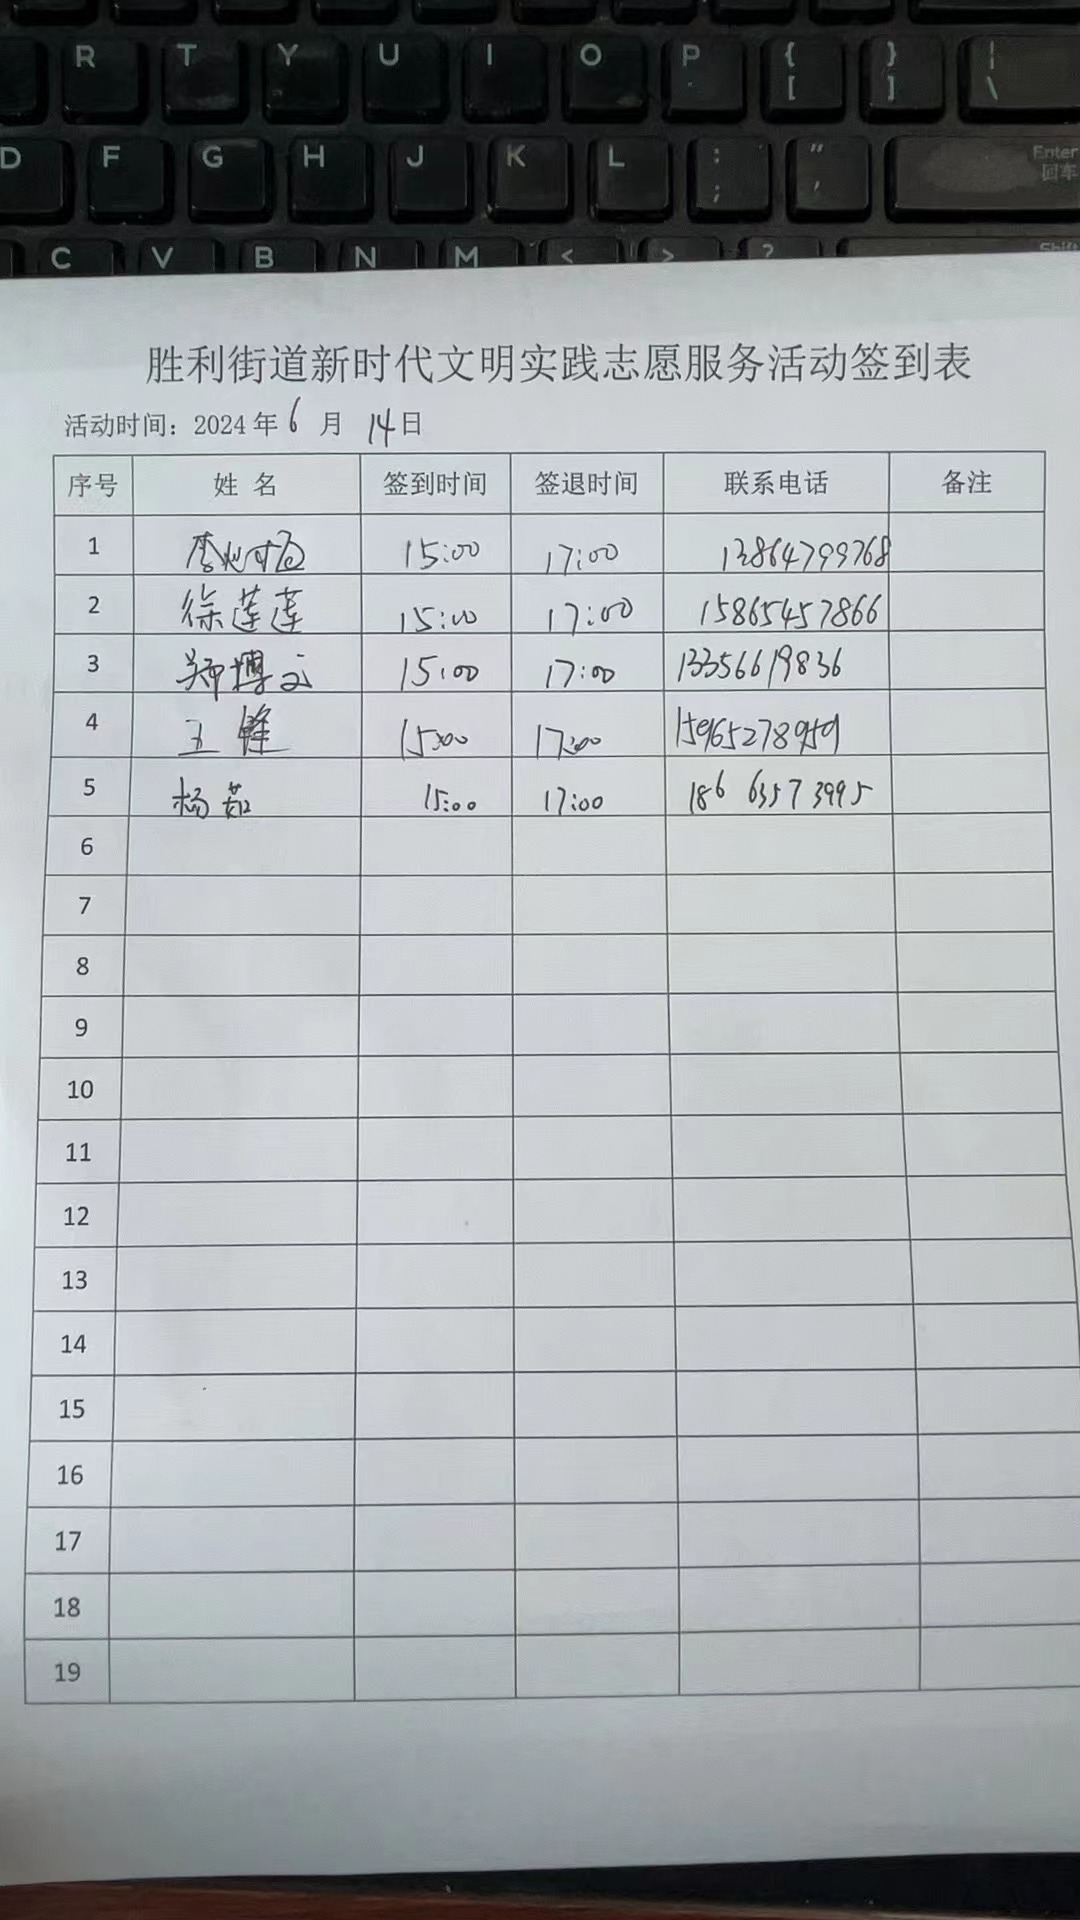 R T Y U I O P { [ } ] | \
D F G H J K L : ; " ' Enter 回车
C V B N M < > ? Shift
胜利街道新时代文明实践志愿服务活动签到表
活动时间：2024年6月14日
序号 姓名 签到时间 签退时间 联系电话 备注
1 李 15:00 17:00 13864799768
2 徐莲莲 15:00 17:00 15865457866
3 郑博文 15:00 17:00 13356619836
4 王锋 15:00 17:00 15965278959
5 杨茹 15:00 17:00 186 6357 3995
6
7
8
9
10
11
12
13
14
15
16
17
18
19